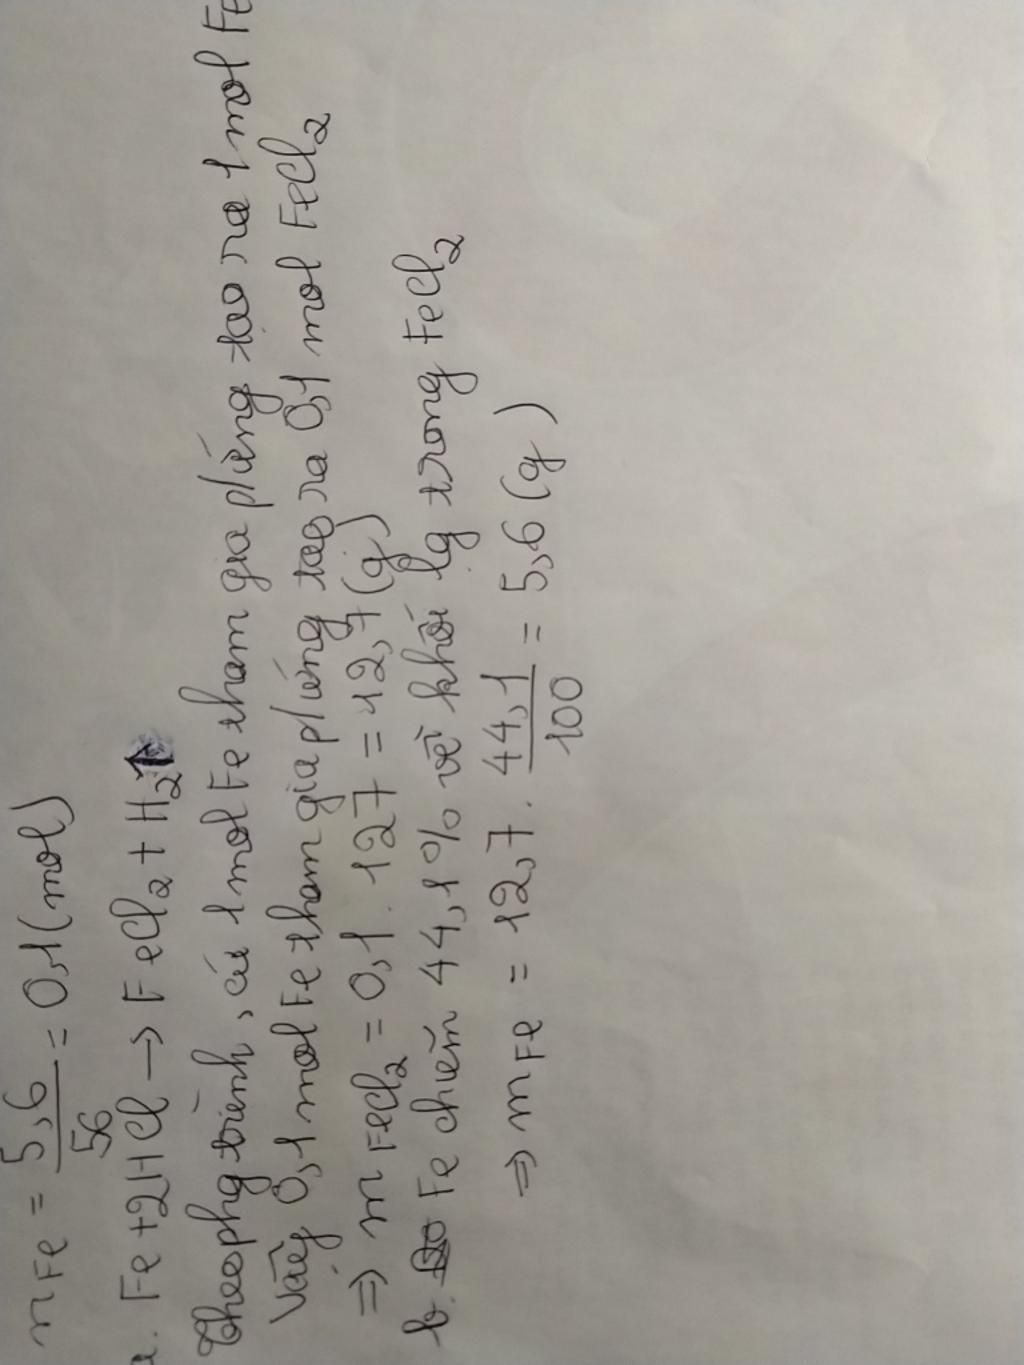 nFe = 5,6/56 = 0,1 (mol)
a. Fe + 2HCl → FeCl2 + H2↑
Theo phg trình, cứ 1 mol Fe tham gia p/ứng tạo ra 1 mol Fe
Vậy 0,1 mol Fe tham gia p/ứng tạo ra 0,1 mol FeCl2
⇒ m FeCl2 = 0,1 . 127 = 12,7 (g)
b. Do Fe chiếm 44,1% về khối lg trong FeCl2
⇒ mFe = 12,7 . 44,1/100 = 5,6 (g)